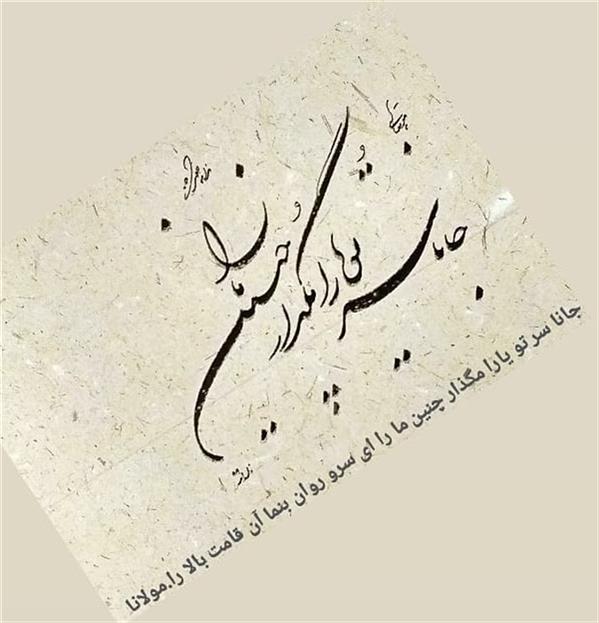 جانا سر تو یارا مگذار چنین ما را
جانا سر تو یارا مگذار چنین ما را ای سرو روان بنما آن قامت بالا را.مولانا